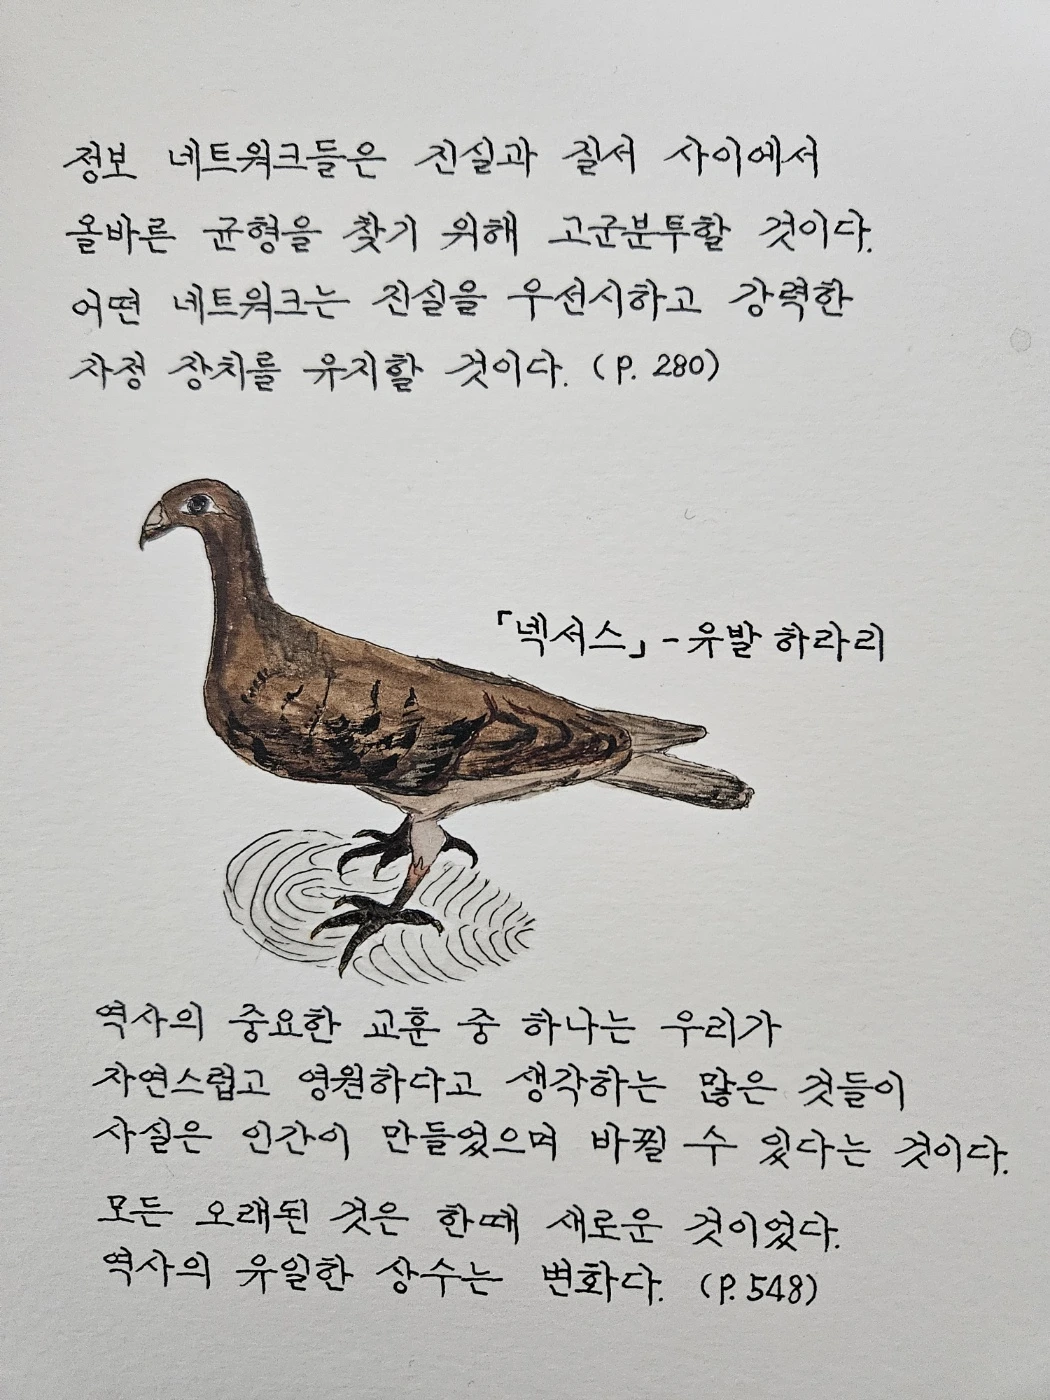 정보 네트워크들은 진실과 질서 사이에서
올바른 균형을 찾기 위해 고군분투할 것이다.
어떤 네트워크는 진실을 우선시하고 강력한
자정 장치를 유지할 것이다. (P. 280)
「넥서스」 - 유발 하라리
역사의 중요한 교훈 중 하나는 우리가
자연스럽고 영원하다고 생각하는 많은 것들이
사실은 인간이 만들었으며 바뀔 수 있다는 것이다.
모든 오래된 것은 한때 새로운 것이었다.
역사의 유일한 상수는 변화다. (P. 548)